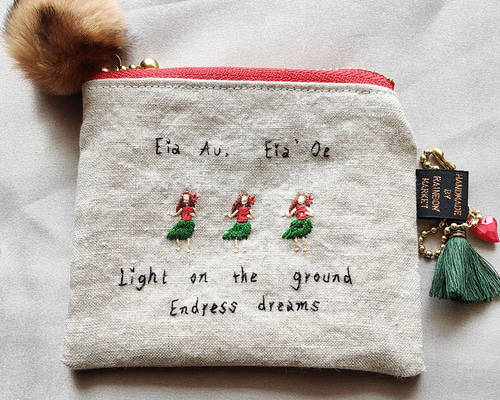 Eia Au, Eia' Oe
Light on the ground
Endress dreams
HANDMADE
BY
RAINBOW
MARKET